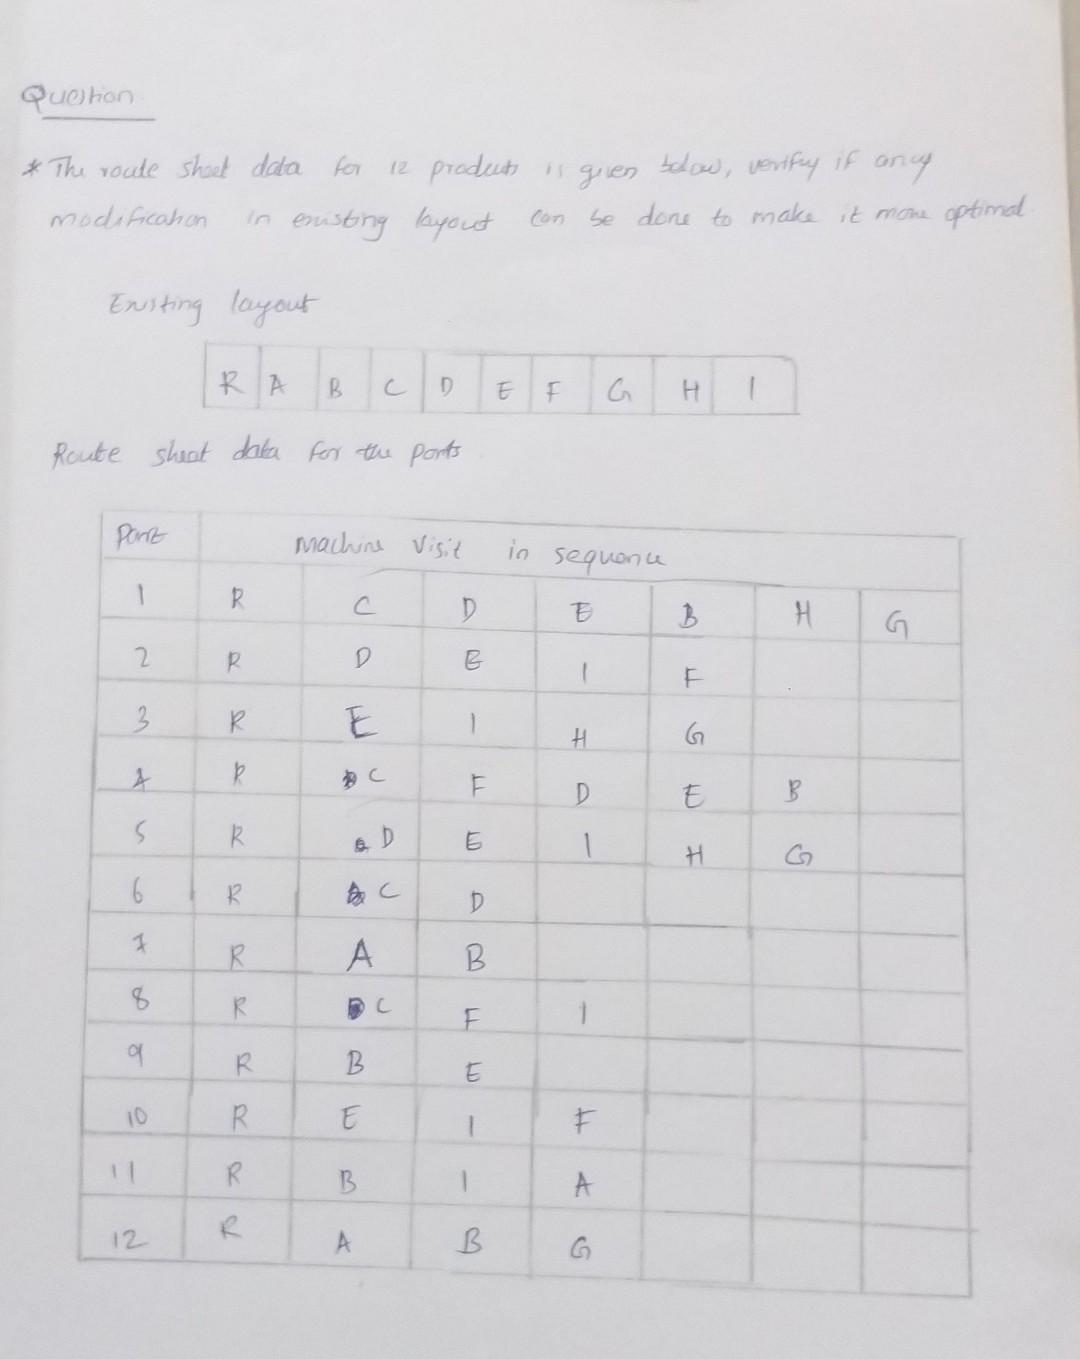 Question
* The route sheet data for 12 products is given below, verify if any
modification in existing layout can be done to make it more optimal.
Existing layout
R A B C D E F G H I
Route sheet data for the parts
Part Machine Visit in sequence
1 R C D E B H G
2 R D E I F
3 R E I H G
4 R C F D E B
5 R D E I H G
6 R C D
7 R A B
8 R C F I
9 R B E
10 R E I F
11 R B I A
12 R A B G